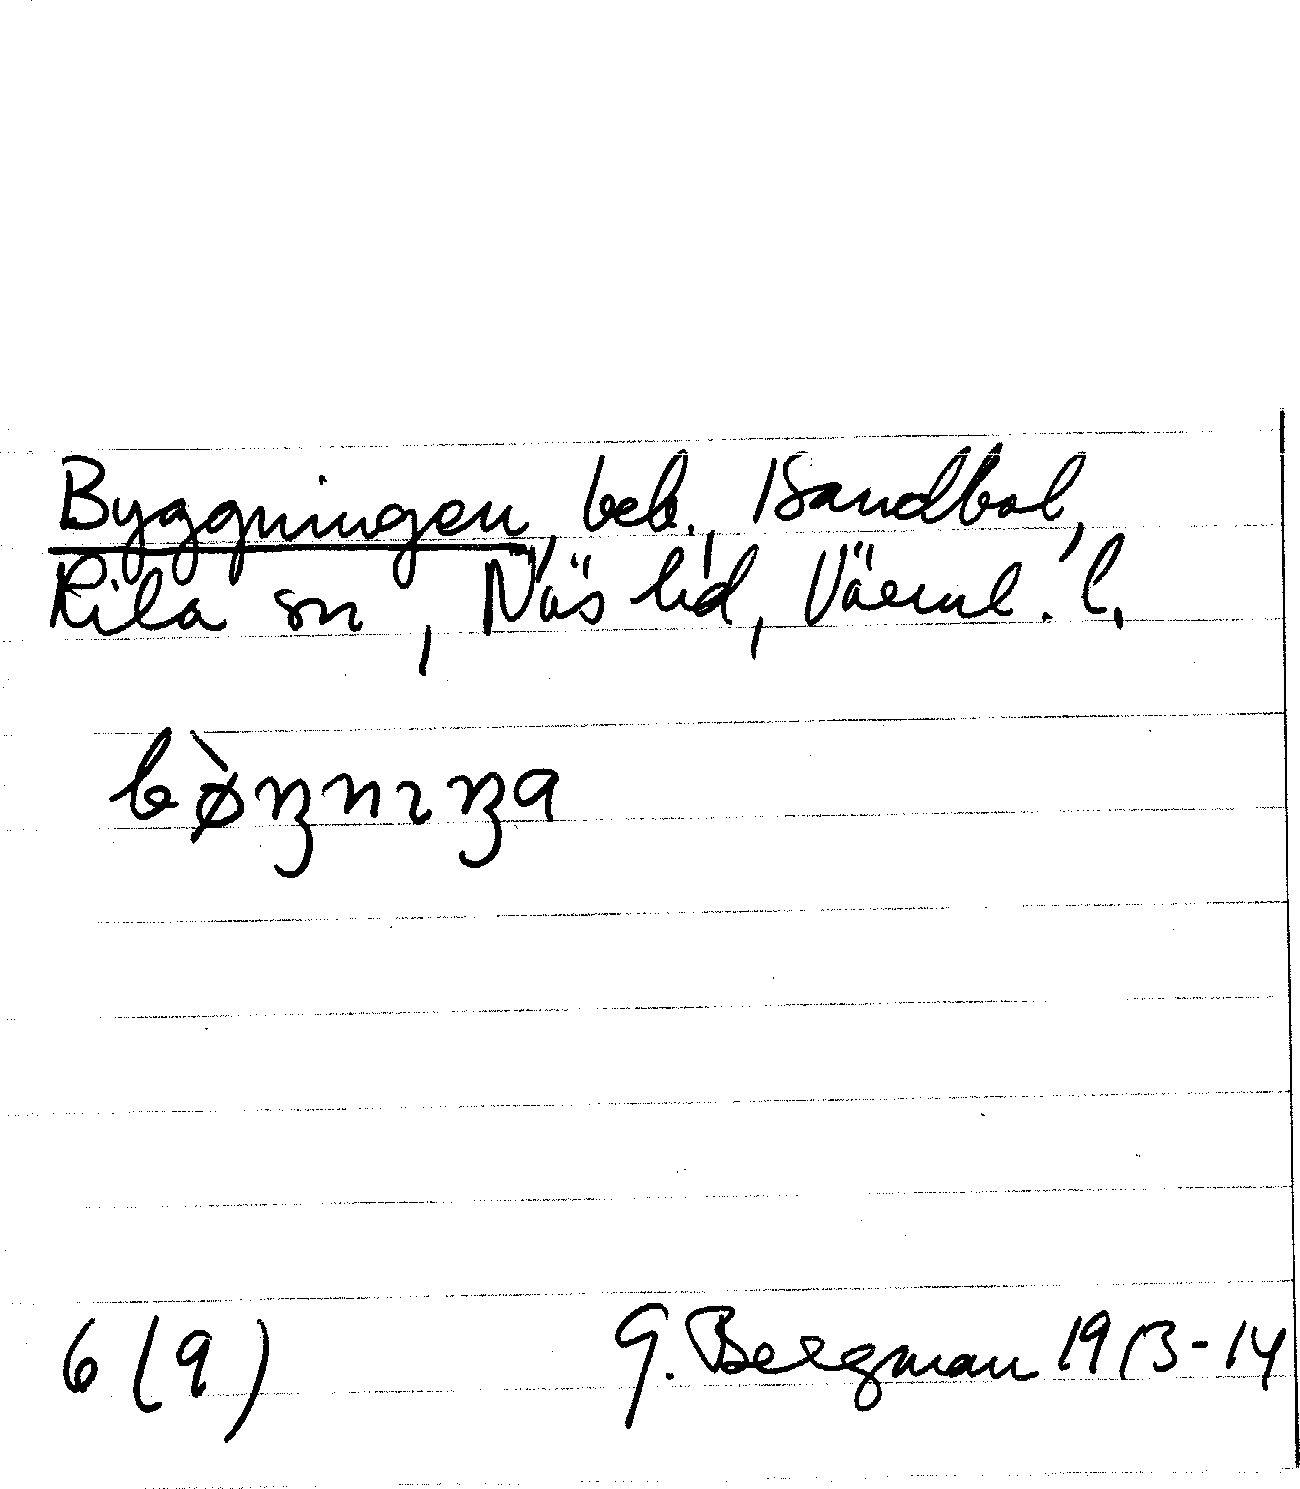 Byggningen, beb., Sandbol,
Kila sn, Näs hd, Värml. l.
bø̀ŋnɪŋa
6 (9)
G. Bergman 1913-14